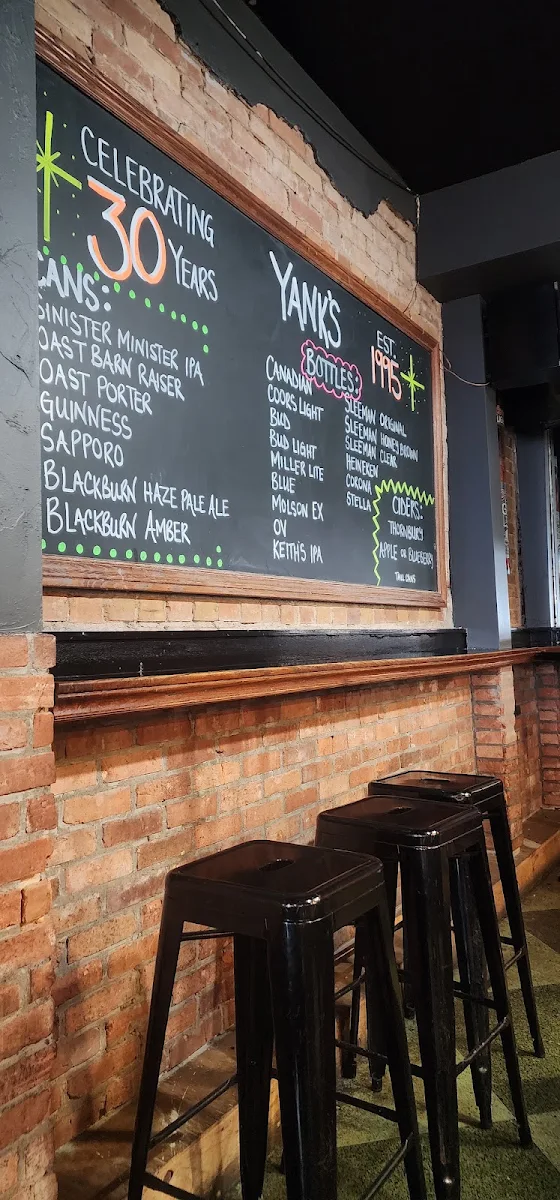 CELEBRATING
30 YEARS
CANS:
SINISTER MINISTER IPA
OAST BARN RAISER
OAST PORTER
GUINNESS
SAPPORO
BLACKBURN HAZE PALE ALE
BLACKBURN AMBER
YANK'S
EST.
1995
BOTTLES:
CANADIAN
COORS LIGHT
BUD
BUD LIGHT
MILLER LITE
BLUE
MOLSON EX
OV
KEITH'S IPA
SLEEMAN ORIGINAL
SLEEMAN HONEY BROWN
SLEEMAN CLEAR
HEINEKEN
CORONA
STELLA
CIDERS:
THORNBURY
APPLE OR BLUEBERRY
TALL CANS